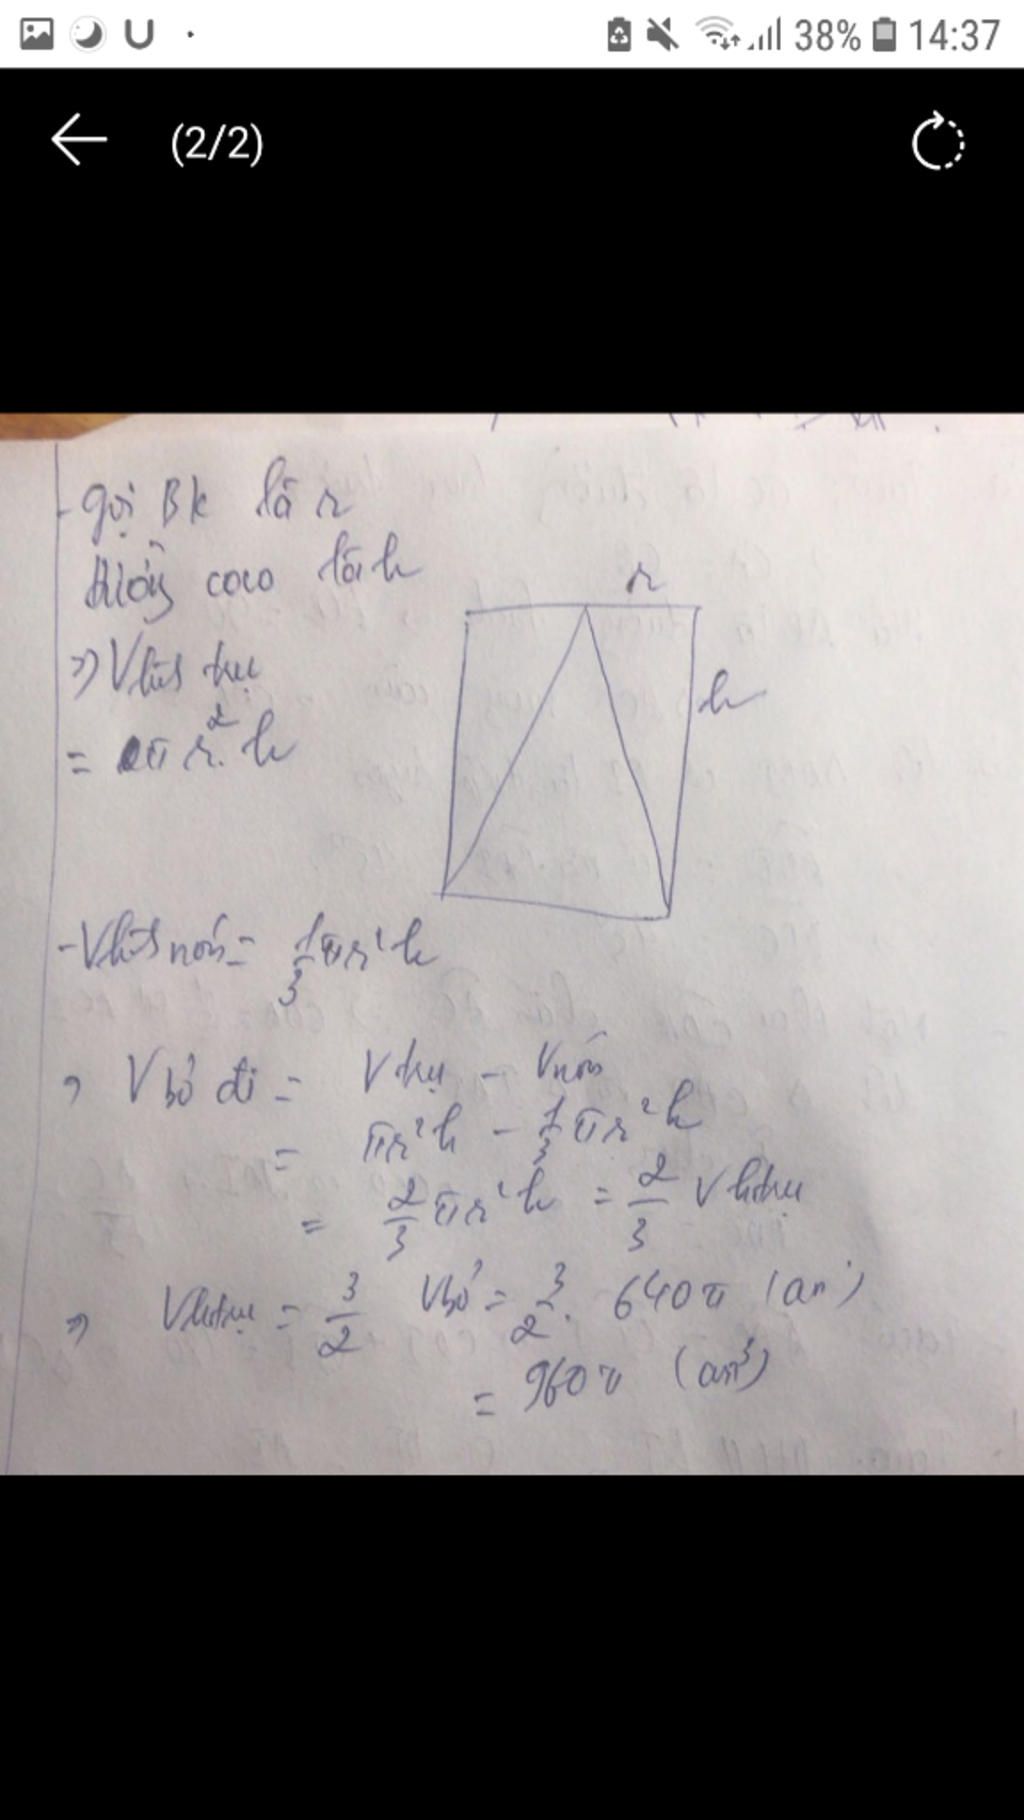 38% 14:37
(2/2)
- gọi Bk là r
chiều cao là h
r
=> V hình trụ
h
= π r².h
- V hình nón = 1/3 πr²h
=> V bỏ đi = V trụ - V nón
= πr²h - 1/3 πr²h
= 2/3 πr²h = 2/3 V h.trụ
=> V h.trụ = 3/2 V bỏ = 3/2 . 640π (cm³)
= 960π (cm³)